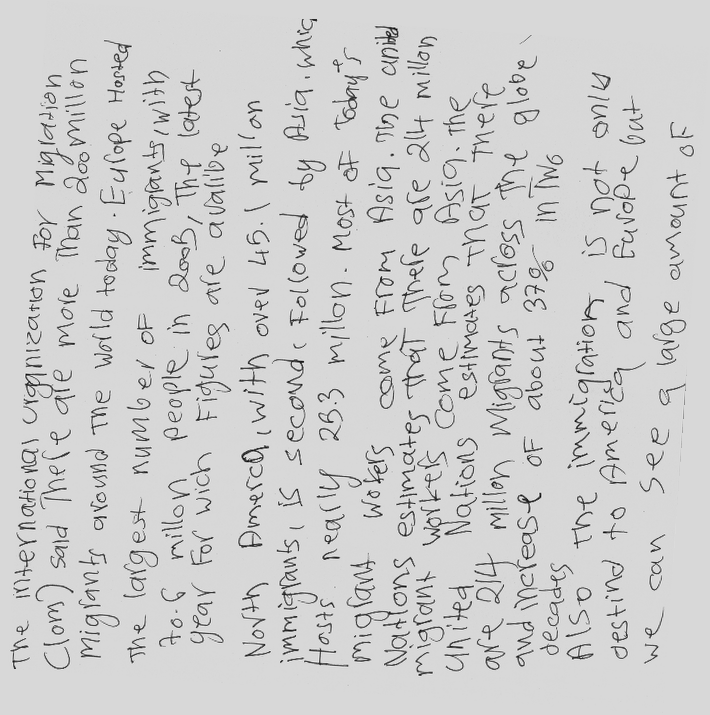 The international organization For Migration
(Iom) said There are more Than 200 millon
migrants around The world today. Europe Hosted
The largest number of immigrants, with
70.6 millon people in 2005, The latest
year For wich Figures are avalibe
North Amerca, with over 45.1 millan
immigrants, is second, Followed by Asia, whic
Hosts nearly 25.3 millon. Most of Today's
migrant wokers come From Asia. The united
Nations estimates That There are 214 millon
migrant workers come From Asia. the
united Nations estimates That There
are 214 millon Migrants across The globe,
and increase of about 37% in Two
decades
Also The immigration is not only
destind to America and Europe but
we can see a large amount of